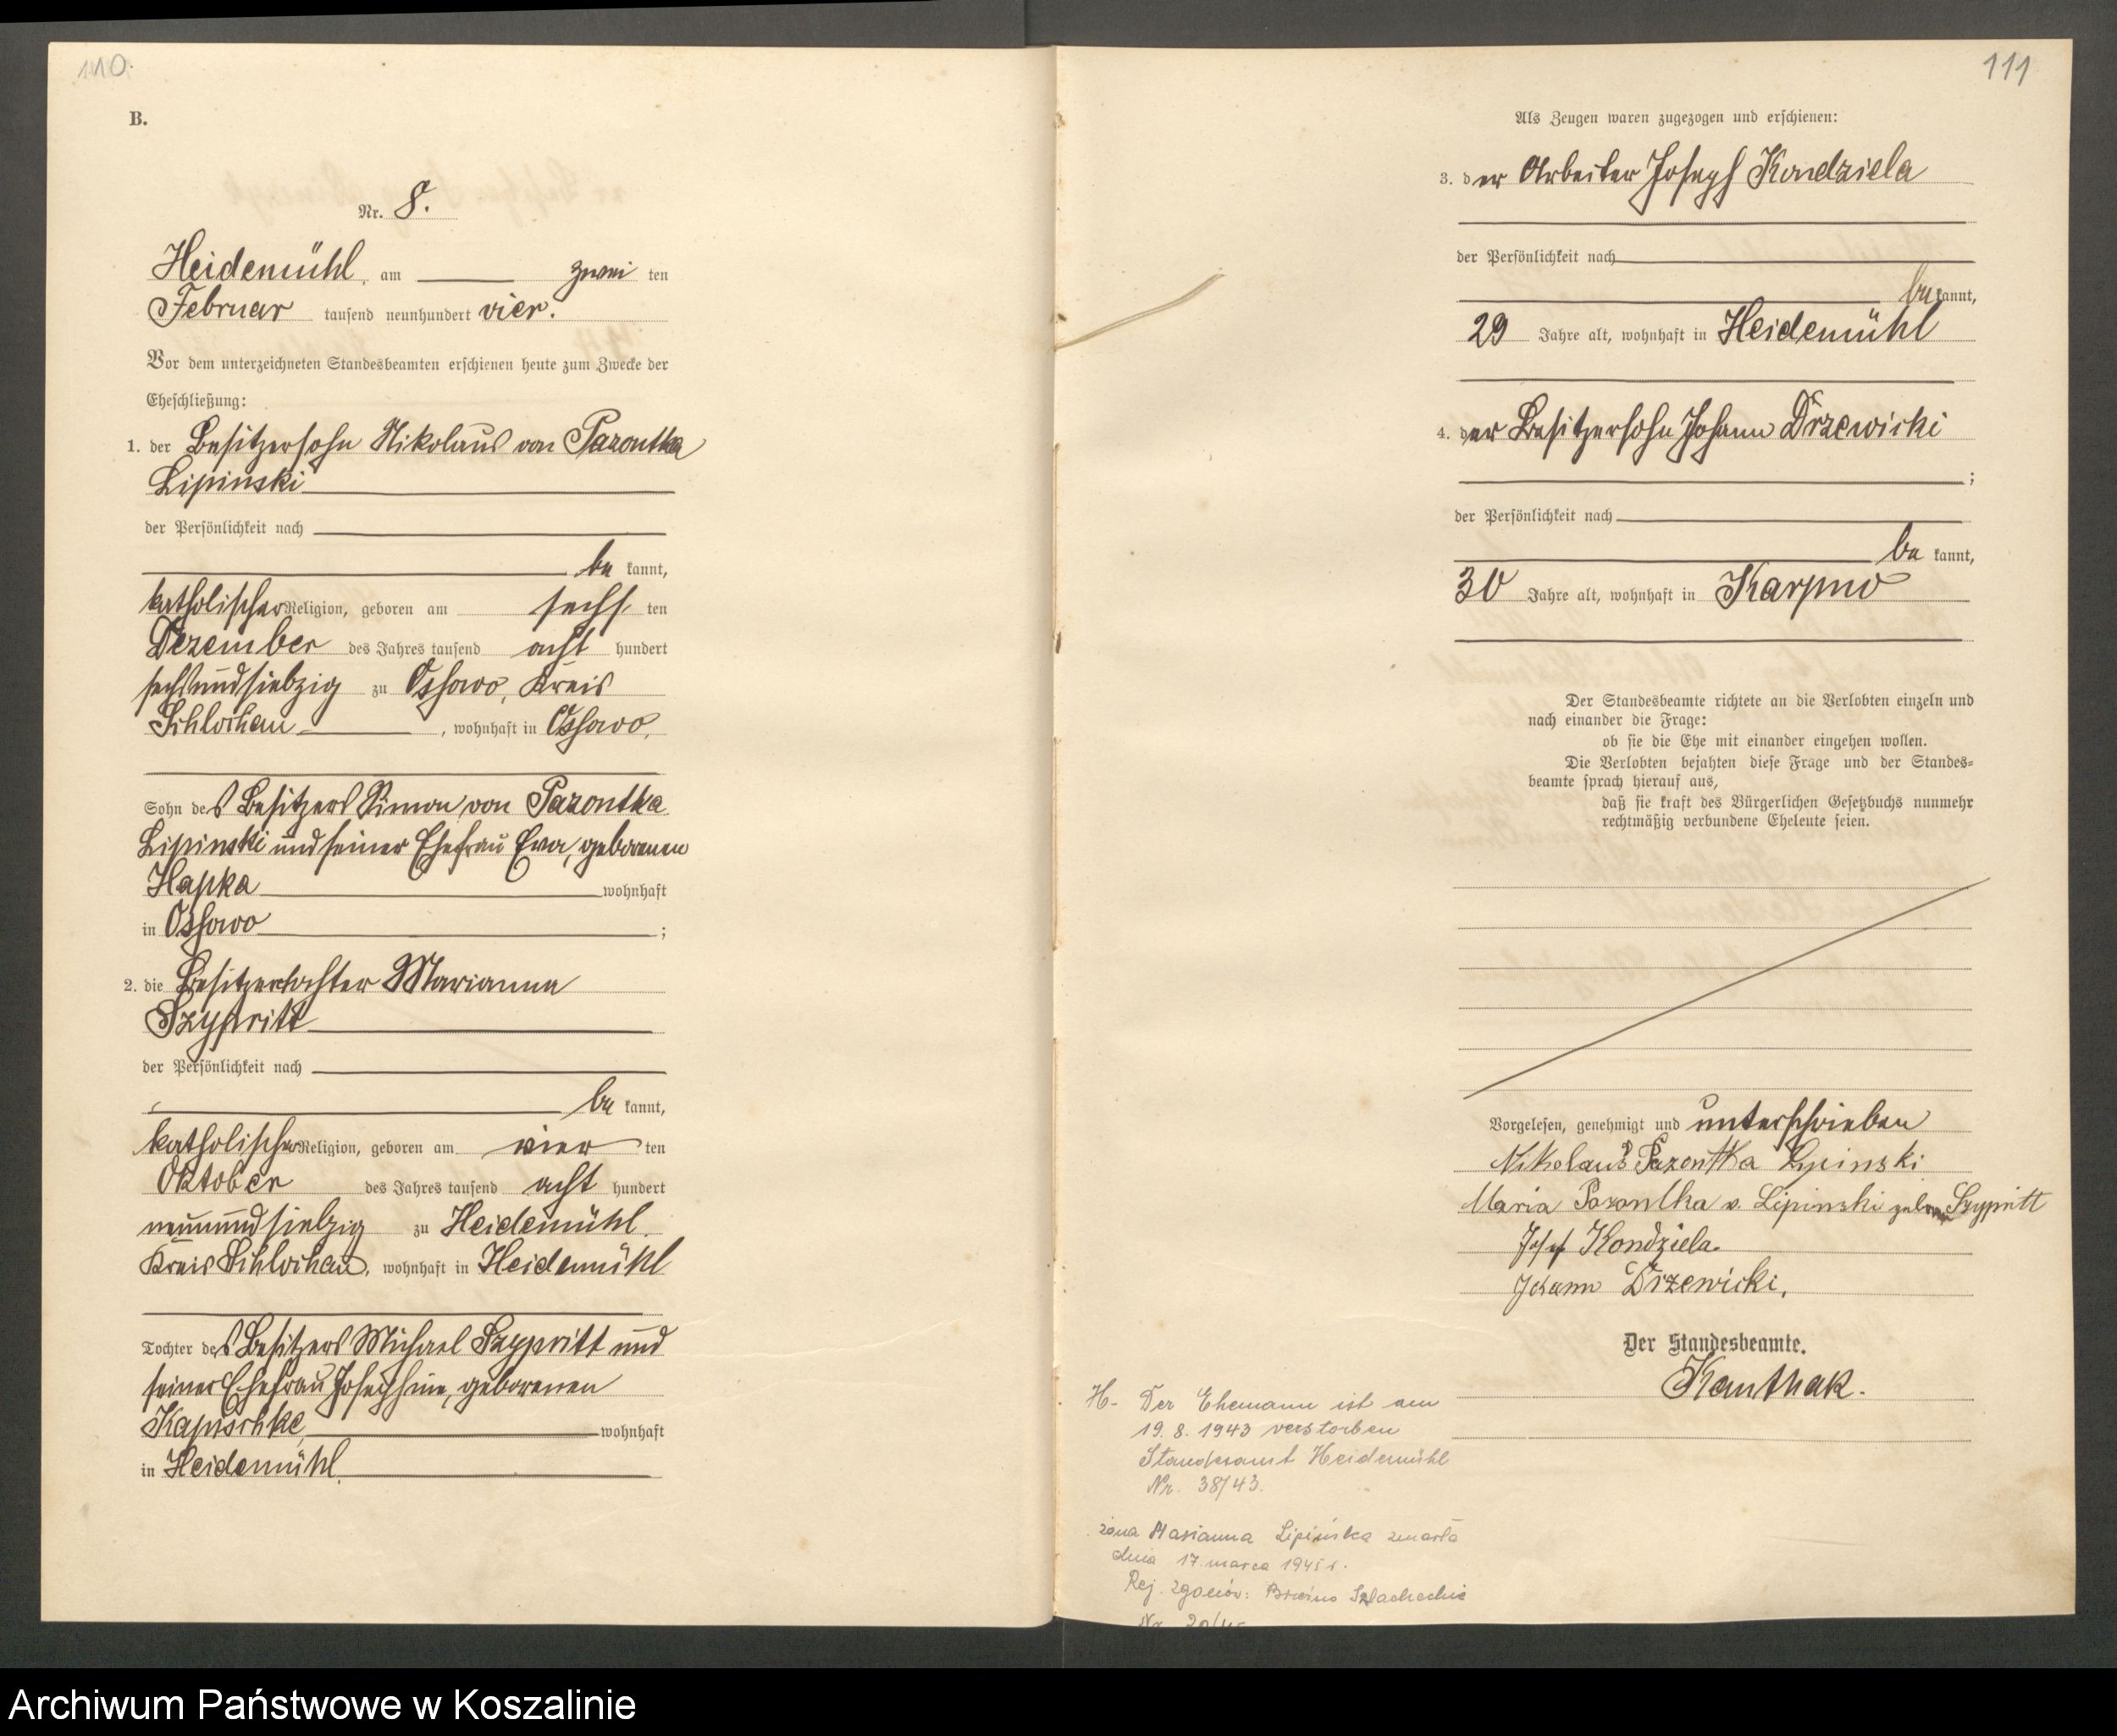 110.
B.
Nr. 8.
Heidemühl, am zwei ten
Februar tausend neunhundert vier.
Vor dem unterzeichneten Standesbeamten erschienen heute zum Zwecke der
Eheschließung:
1. der Besitzersohn Nikolaus von Pazontka
Lipinski
der Persönlichkeit nach
be kannt,
katholischer Religion, geboren am sechs ten
Dezember des Jahres tausend acht hundert
sechsundsiebzig zu Ossowo, Kreis
Schlochau, wohnhaft in Ossowo,
Sohn des Besitzers Simon von Pazontka
Lipinski und seiner Ehefrau Eva, geborenen
Hapka wohnhaft
in Ossowo ;
2. die Besitzertochter Marianna
Szypritt
der Persönlichkeit nach
be kannt,
katholischer Religion, geboren am vier ten
Oktober des Jahres tausend acht hundert
neunundsiebzig zu Heidemühl,
Kreis Schlochau, wohnhaft in Heidemühl
Tochter des Besitzers Michael Szypritt und
seiner Ehefrau Josephine, geborenen
Kapischke, wohnhaft
in Heidemühl
111
Als Zeugen waren zugezogen und erschienen:
3. der Arbeiter Joseph Kondziela
der Persönlichkeit nach
be kannt,
29 Jahre alt, wohnhaft in Heidemühl
4. der Besitzersohn Johann Drzewicki
;
der Persönlichkeit nach
be kannt,
30 Jahre alt, wohnhaft in Karpno
Der Standesbeamte richtete an die Verlobten einzeln und
nach einander die Frage:
ob sie die Ehe mit einander eingehen wollen.
Die Verlobten bejahten diese Frage und der Standes=
beamte sprach hierauf aus,
daß sie kraft des Bürgerlichen Gesetzbuchs nunmehr
rechtmäßig verbundene Eheleute seien.
Vorgelesen, genehmigt und unterschrieben
Nikolaus Pazontka Lipinski
Maria Pazontka v. Lipinski geborene Szypritt
Josef Kondziela.
Johann Drzewicki,
Der Standesbeamte.
Kanthak.
H- Der Ehemann ist am
19. 8. 1943 verstorben
Standesamt Heidemühl
Nr. 38/43.
żona Marianna Lipińska zmarła
dnia 17. marca 1945 r.
Rej. zgonów: Brzeźno Szlacheckie
Nr.
Archiwum Państwowe w Koszalinie